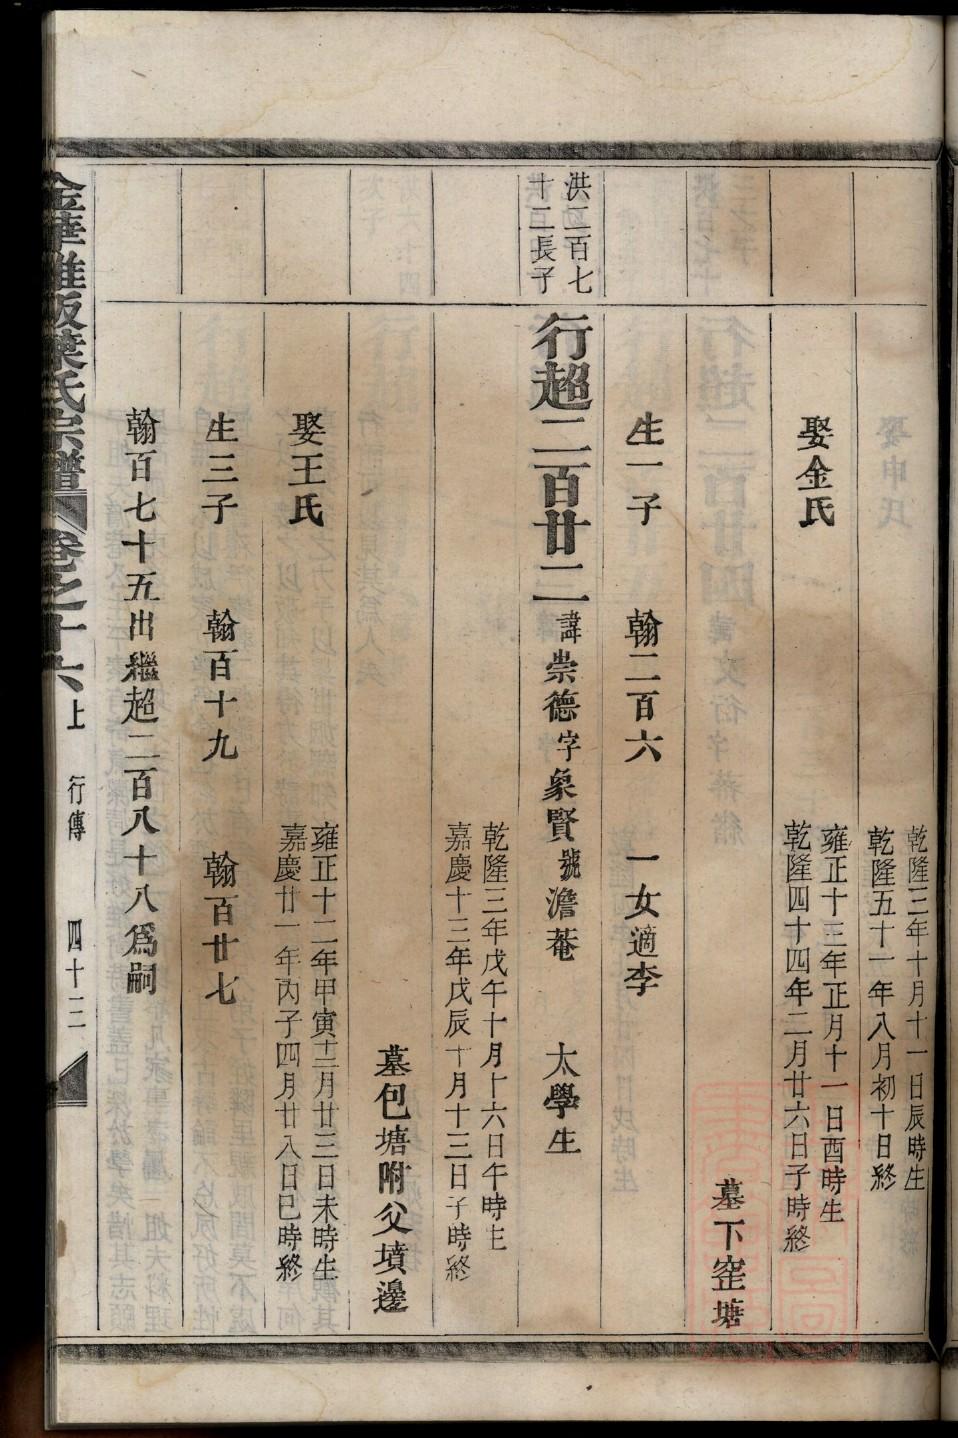 乾隆三年十月十一日辰時生
乾隆五十一年八月初十日終
娶金氏
雍正十三年正月十一日酉時生
乾隆四十四年二月廿六日子時終
墓下窑塘
生一子 翰二百六 一女適李
洪二百七
十二長子
行超二百廿二 諱崇德字象賢號澹菴 太學生
乾隆三年戊午十月十六日午時生
嘉慶十三年戊辰十月十三日子時終
墓包塘附父墳邊
娶王氏
雍正十二年甲寅十二月廿三日未時生
嘉慶廿一年丙子四月廿八日巳時終
生三子 翰百十九 翰百廿七
翰百七十五出繼超二百八十八爲嗣
金華雅畈葉氏宗譜 卷之十六上 行傳 四十二